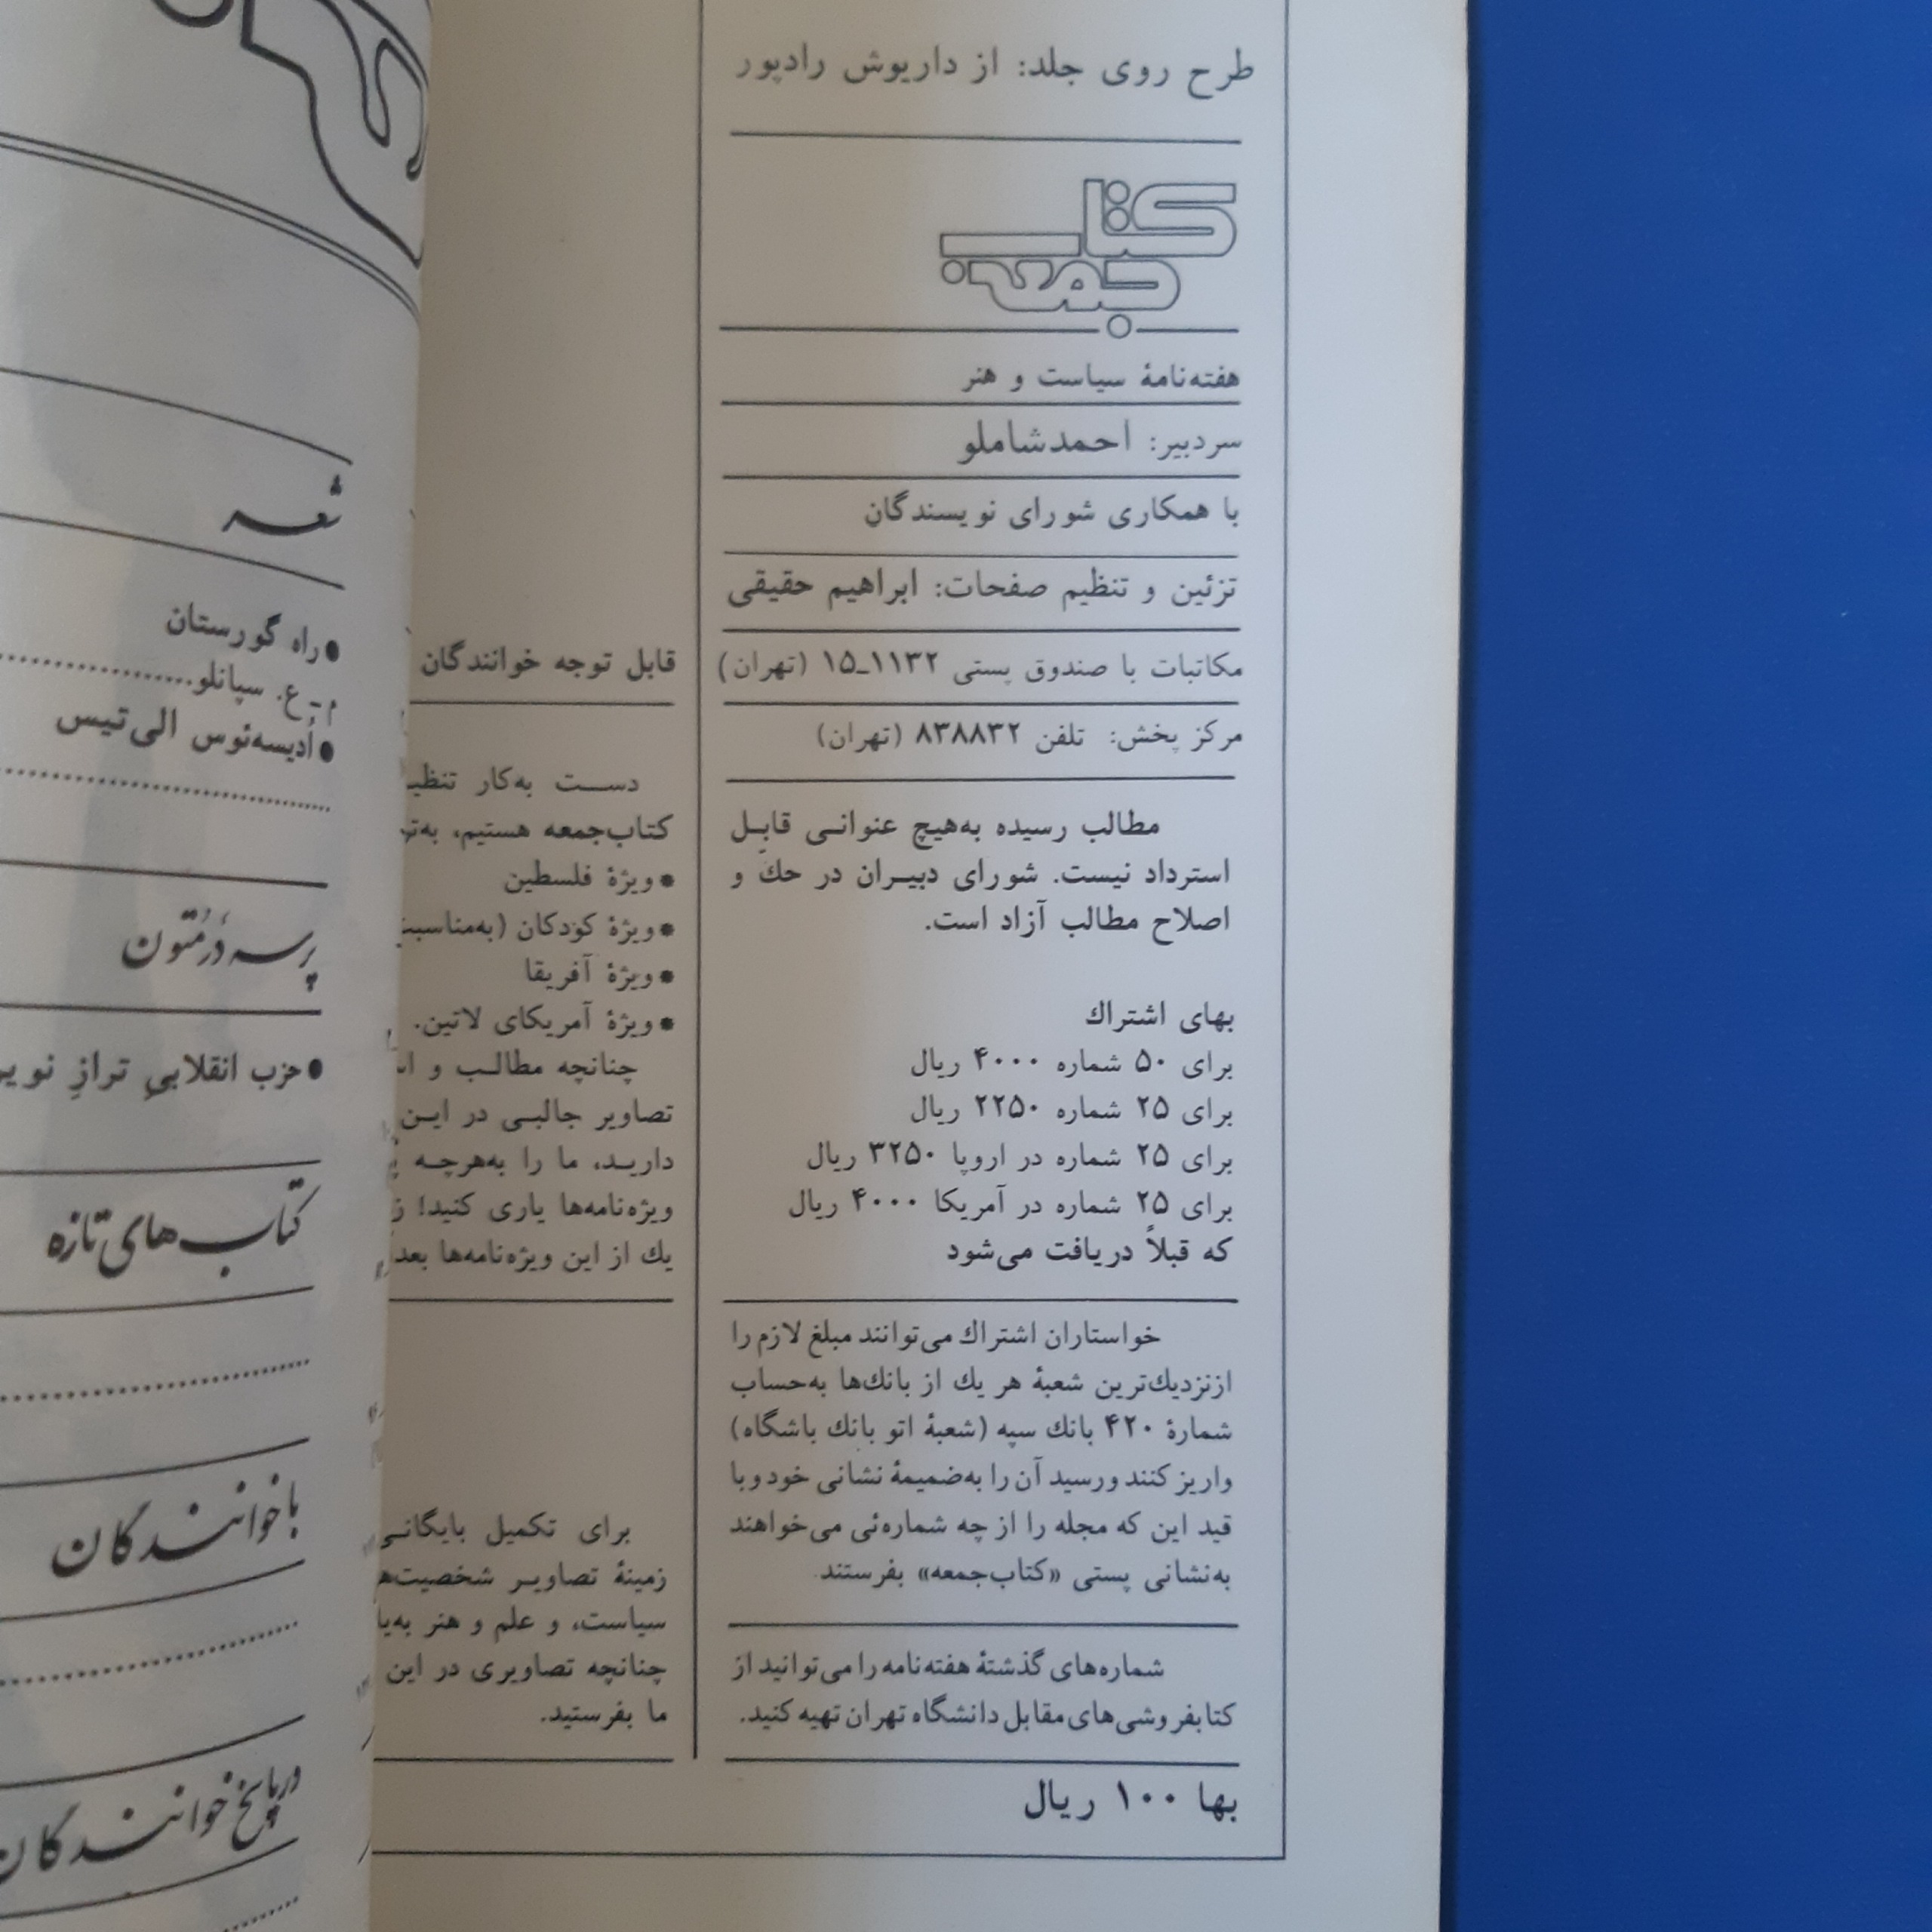 طرح روی جلد: از داریوش رادپور
کتاب
جمعه
هفته‌نامهٔ سیاست و هنر
سردبیر: احمد شاملو
با همکاری شورای نویسندگان
تزئین و تنظیم صفحات: ابراهیم حقیقی
مکاتبات با صندوق پستی ۱۱۳۲ـ۱۵ (تهران)
مرکز پخش: تلفن ۸۳۸۸۳۲ (تهران)
مطالب رسیده به‌هیچ عنوانی قابل
استرداد نیست. شورای دبیران در حك و
اصلاح مطالب آزاد است.
بهای اشتراك
برای ۵۰ شماره ۴۰۰۰ ریال
برای ۲۵ شماره ۲۲۵۰ ریال
برای ۲۵ شماره در اروپا ۳۲۵۰ ریال
برای ۲۵ شماره در آمریکا ۴۰۰۰ ریال
که قبلاً دریافت می‌شود
خواستاران اشتراك می‌توانند مبلغ لازم را
از نزدیك‌ترین شعبهٔ هر یك از بانك‌ها به‌حساب
شمارهٔ ۴۲۰ بانك سپه (شعبهٔ اتو بانك باشگاه)
واریز کنند و رسید آن را به‌ضمیمهٔ نشانی خود و با
قید این که مجله را از چه شماره‌ئی می‌خواهند
به‌نشانی پستی «کتاب‌جمعه» بفرستند.
شماره‌های گذشتهٔ هفته‌نامه را می‌توانید از
کتابفروشی‌های مقابل دانشگاه تهران تهیه کنید.
بها ۱۰۰ ریال
قابل توجه خوانندگان
دست به‌کار
کتاب‌جمعه هستیم،
• ویژهٔ فلسطین
• ویژهٔ کودکان
• ویژهٔ آفریقا
• ویژهٔ آمریکای لاتین.
چنانچه مطالب و
تصاویر جالبی در این
دارید، ما را به‌هرچه
ویژه‌نامه‌ها یاری کنید!
یك از این ویژه‌نامه‌ها بعد
برای تکمیل بایگانی
زمینهٔ تصاویر
سیاست، و علم و هنر
چنانچه تصاویری در این
ما بفرستید.
شعر
• راه گورستان
م ـ ع. سپانلو
• اُدیسه‌ئوس الی‌تیس
پرسه در متون
• حزب انقلابیِ ترازِ
کتاب‌های تازه
با خوانندگان
در پاسخ خوانندگان